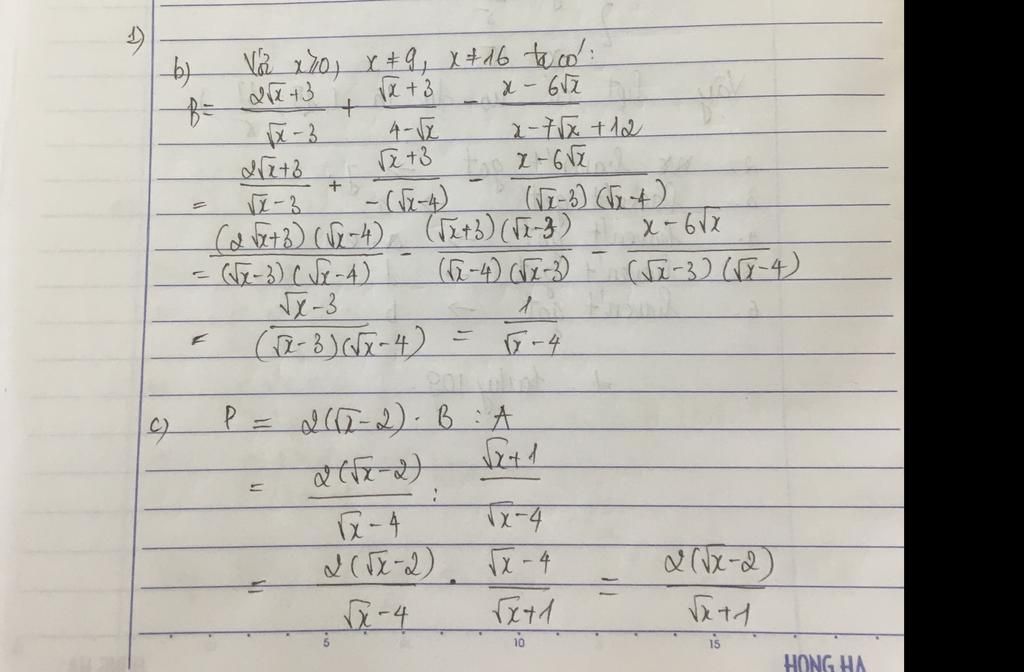 1)
b) Với x ≥ 0, x ≠ 9, x ≠ 16 ta có:
B = (2√x+3)/(√x-3) + (√x+3)/(4-√x) - (x-6√x)/(x-7√x+12)
= (2√x+3)/(√x-3) + (√x+3)/(-(√x-4)) - (x-6√x)/((√x-3)(√x-4))
= ((2√x+3)(√x-4))/((√x-3)(√x-4)) - ((√x+3)(√x-3))/((√x-4)(√x-3)) - (x-6√x)/((√x-3)(√x-4))
= (√x-3)/((√x-3)(√x-4)) = 1/(√x-4)
c) P = 2(√x-2) · B : A
= 2(√x-2)/(√x-4) : (√x+1)/(√x-4)
= 2(√x-2)/(√x-4) . (√x-4)/(√x+1) = 2(√x-2)/(√x+1)
5 10 15
HONG HA